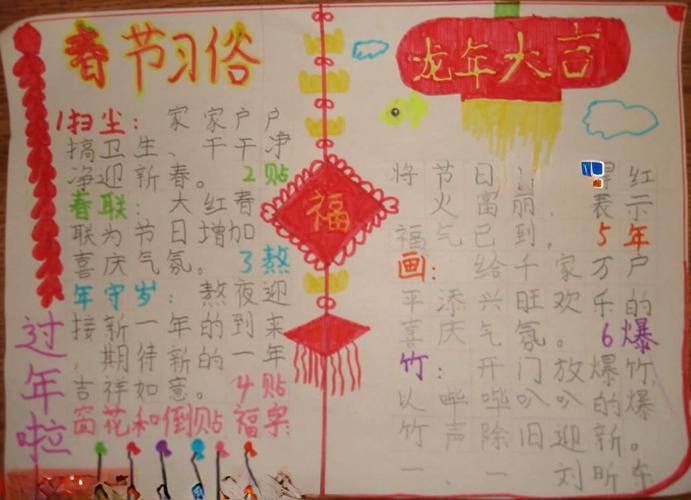 春节习俗
1扫尘：家家户户
搞卫生、干干净
净迎新春。2贴
春联：大红春
联为节日增加
喜庆气氛。3熬
年守岁：熬夜迎
接新一年的到来
，期待新的一年
吉祥如意。4贴
窗花和倒贴福字：
过年啦
福
龙年大吉
将节日 红
火富丽，表示
福气已到。5年
画：给千家万户
平添兴旺欢乐的
喜庆气氛。6爆
竹：开门放爆竹
以哔哔叭叭的爆
竹声除旧迎新。
一、一 刘昕东